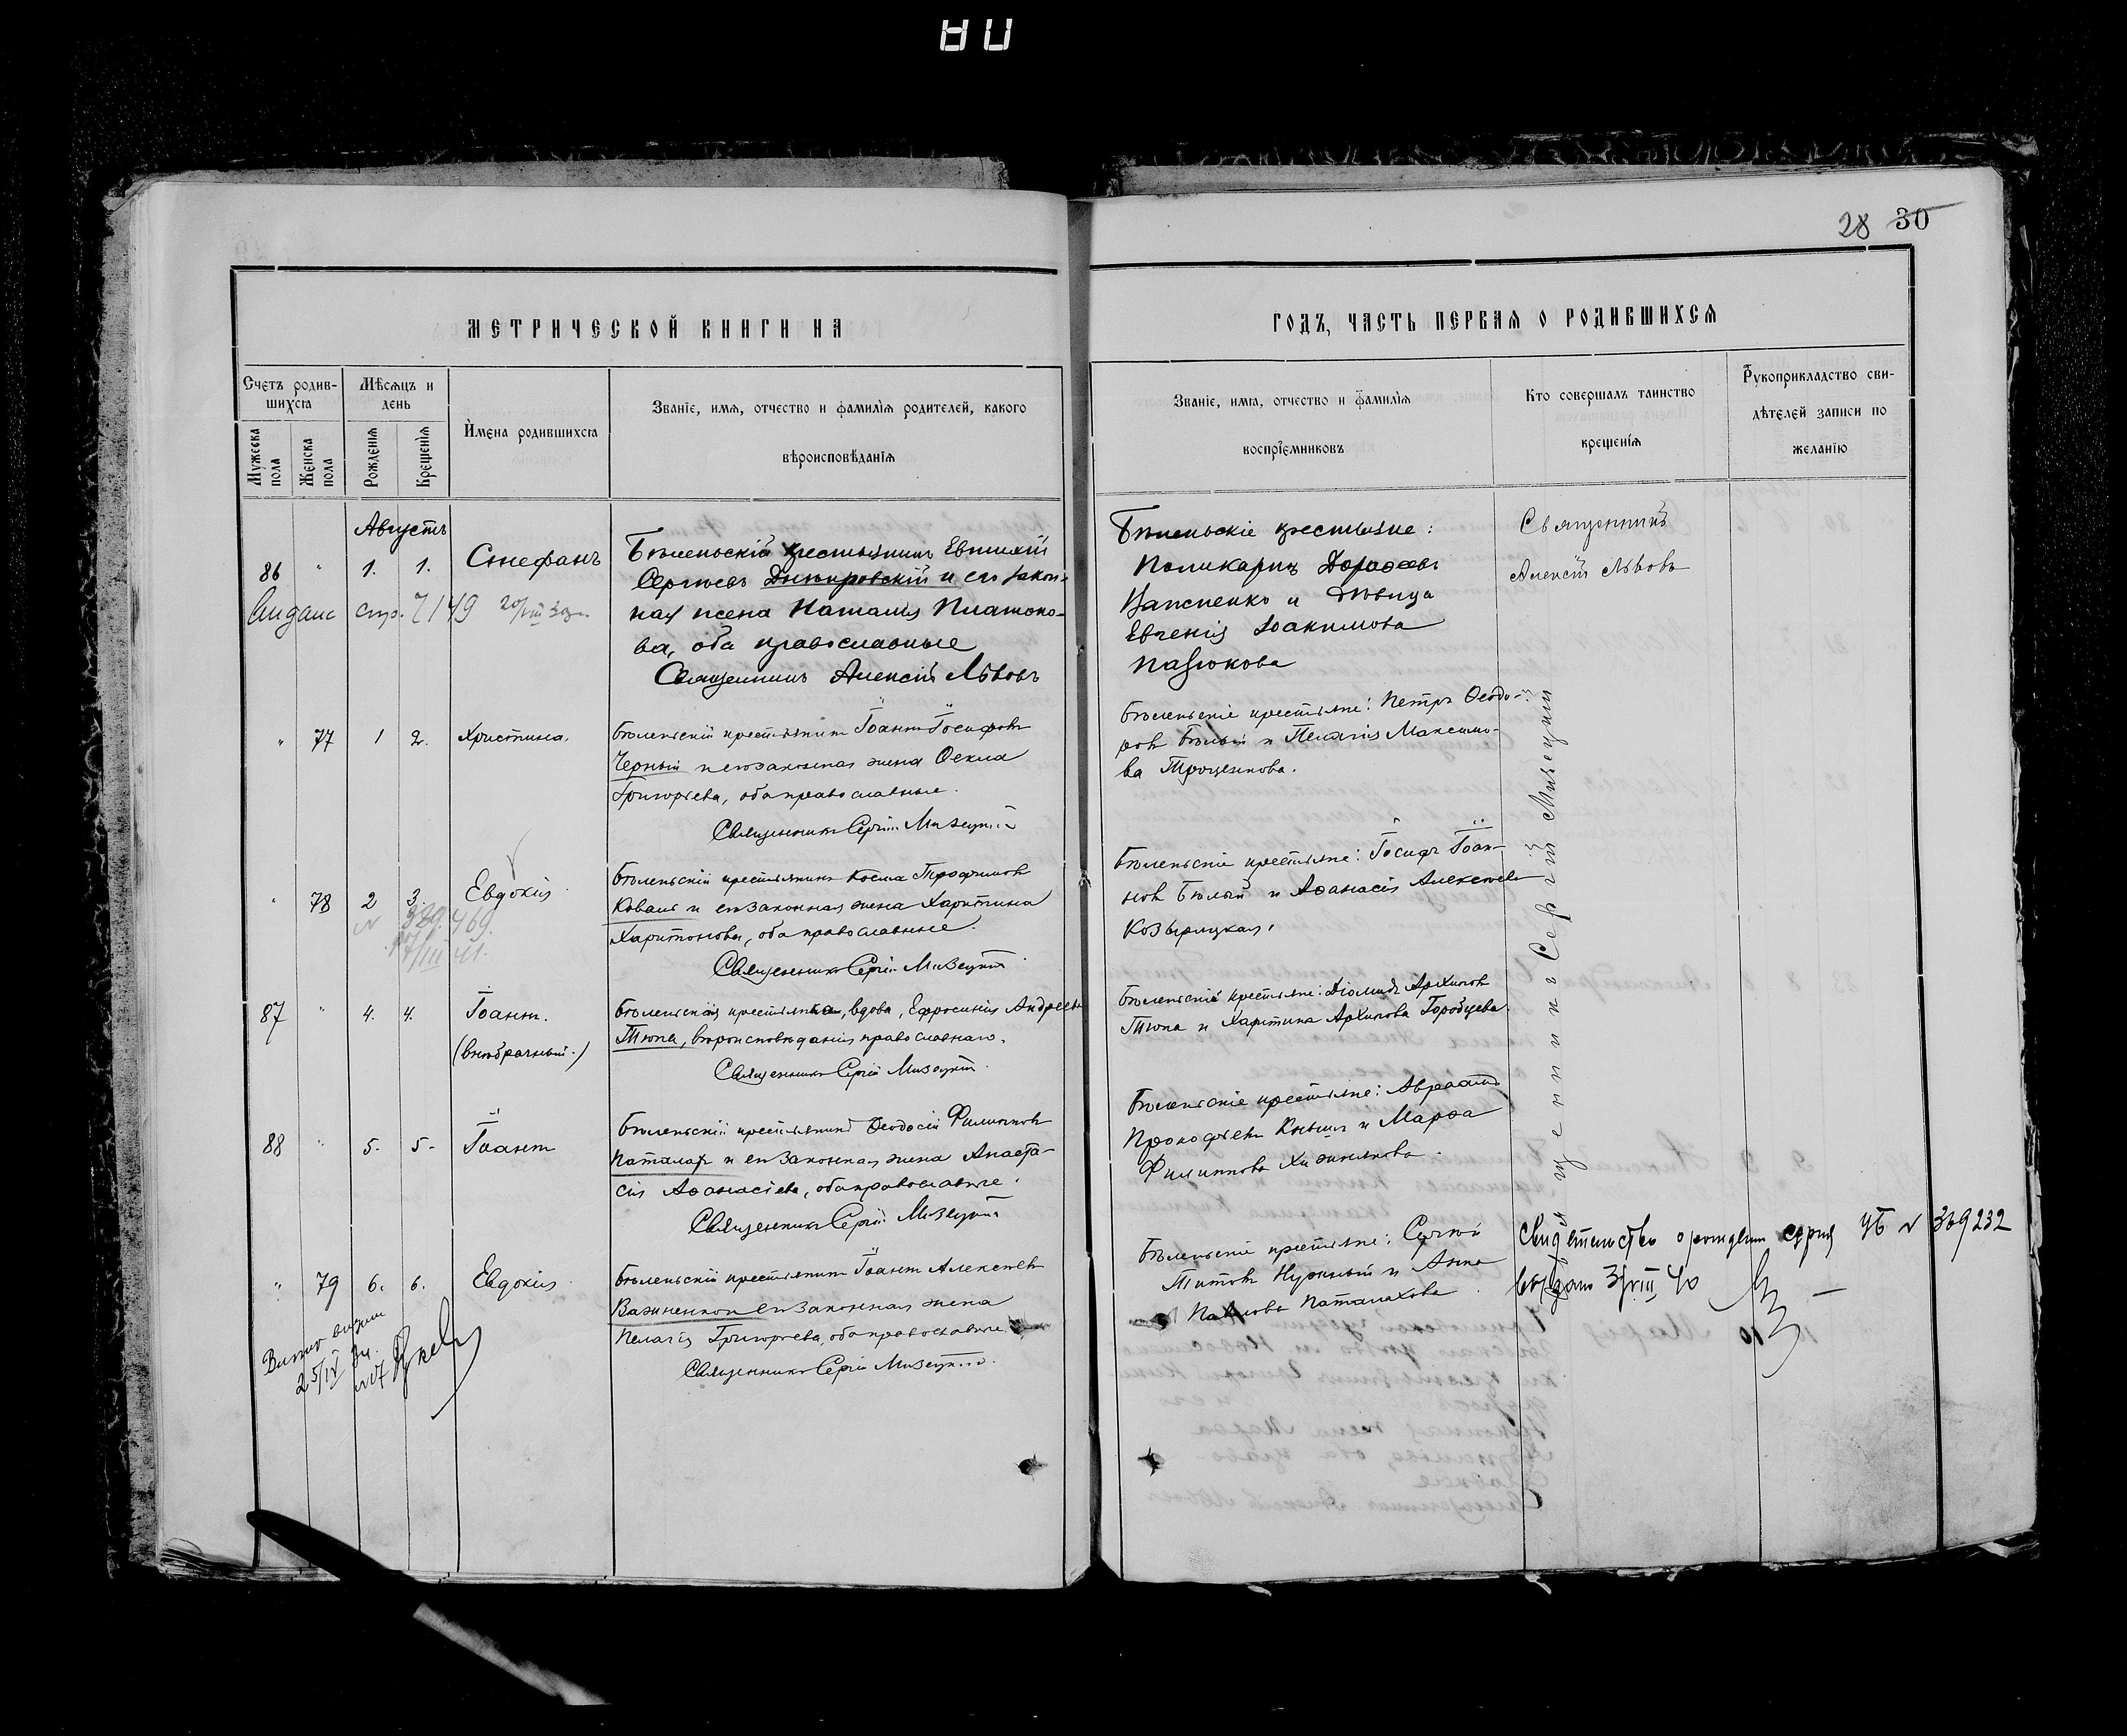 28 30
МЕТРИЧЕСКОЙ КНИГИ НА
ГОДЪ, ЧАСТЬ ПЕРВАЯ О РОДИВШИХСЯ
Счетъ родив-
шихся
Мѣсяцъ и
день
Имена родившихся
Званіе, имя, отчество и фамилія родителей, какого
вѣроисповѣданія
Мужеска
пола
Женска
пола
Рожденія
Крещенія
Званіе, имя, отчество и фамилія
воспріемниковъ
Кто совершалъ таинство
крещенія
Рукоприкладство сви-
дѣтелей записи по
желанію
Августъ
86 " 1. 1. Стефанъ
Бѣленьскій крестьянинъ Евтихій
Сергіевъ Днѣпровскій и его закон-
ная жена Наталія Платоно-
ва, оба православные
Священникъ Алексій Львовъ
Бѣленьскіе крестьяне:
Поликарпъ
и дѣвица
Евгенія Іоакимова
Пазюкова
Священникъ
Алексій Львовъ
" 77 1 2. Христина.
Бѣленьскій крестьянинъ Іоаннъ Іосифовъ
Черный и его законная жена Ѳекла
Григорьева, оба православные.
Священникъ Сергій Мизецкій
Бѣленьскіе крестьяне: Петръ Ѳеодо-
ровъ Бѣлый и Пелагія Максимо-
ва Троценкова.
" 78 2 3. Евдокія
Бѣленьскій крестьянинъ Косма Трофимовъ
Коваль и его законная жена Харитина
Харитонова, оба православные.
Священникъ Сергій Мизецкій
Бѣленьскіе крестьяне: Іосифъ Іоан-
новъ Бѣлый и Аѳанасія Алексѣева
Козырицкая.
87 " 4. 4. Іоаннъ.
(внѣбрачный.)
Бѣленьская крестьянка, вдова, Ефросинія Андреева
Тюпа, вѣроисповѣданія православнаго.
Священникъ Сергій Мизецкій
Бѣленьскіе крестьяне: Діомидъ Архиповъ
Тюпа и Харитина Архипова Горобцева.
88 " 5. 5. Іоаннъ
Бѣленьскій крестьянинъ Ѳеодосій Филипповъ
Паталах и его законная жена Анаста-
сія Аѳанасіева, оба православные.
Священникъ Сергій Мизецкій
Бѣленьскіе крестьяне: Авраамъ
Прокофьевъ Книшъ и Марѳа
Филиппова
" 79 6. 6. Евдокія
Бѣленьскій крестьянинъ Іоаннъ Алексѣевъ
Важиненко и его законная жена
Пелагія Григорьева, оба православные.
Священникъ Сергій Мизецкій
Бѣленьскіе крестьяне: Сергій
Титовъ Нужный и Анна
Павлова Паталахова
Священникъ Сергій Мизецкій
Свидетельство о рождении серия УБ № 369232
выдано